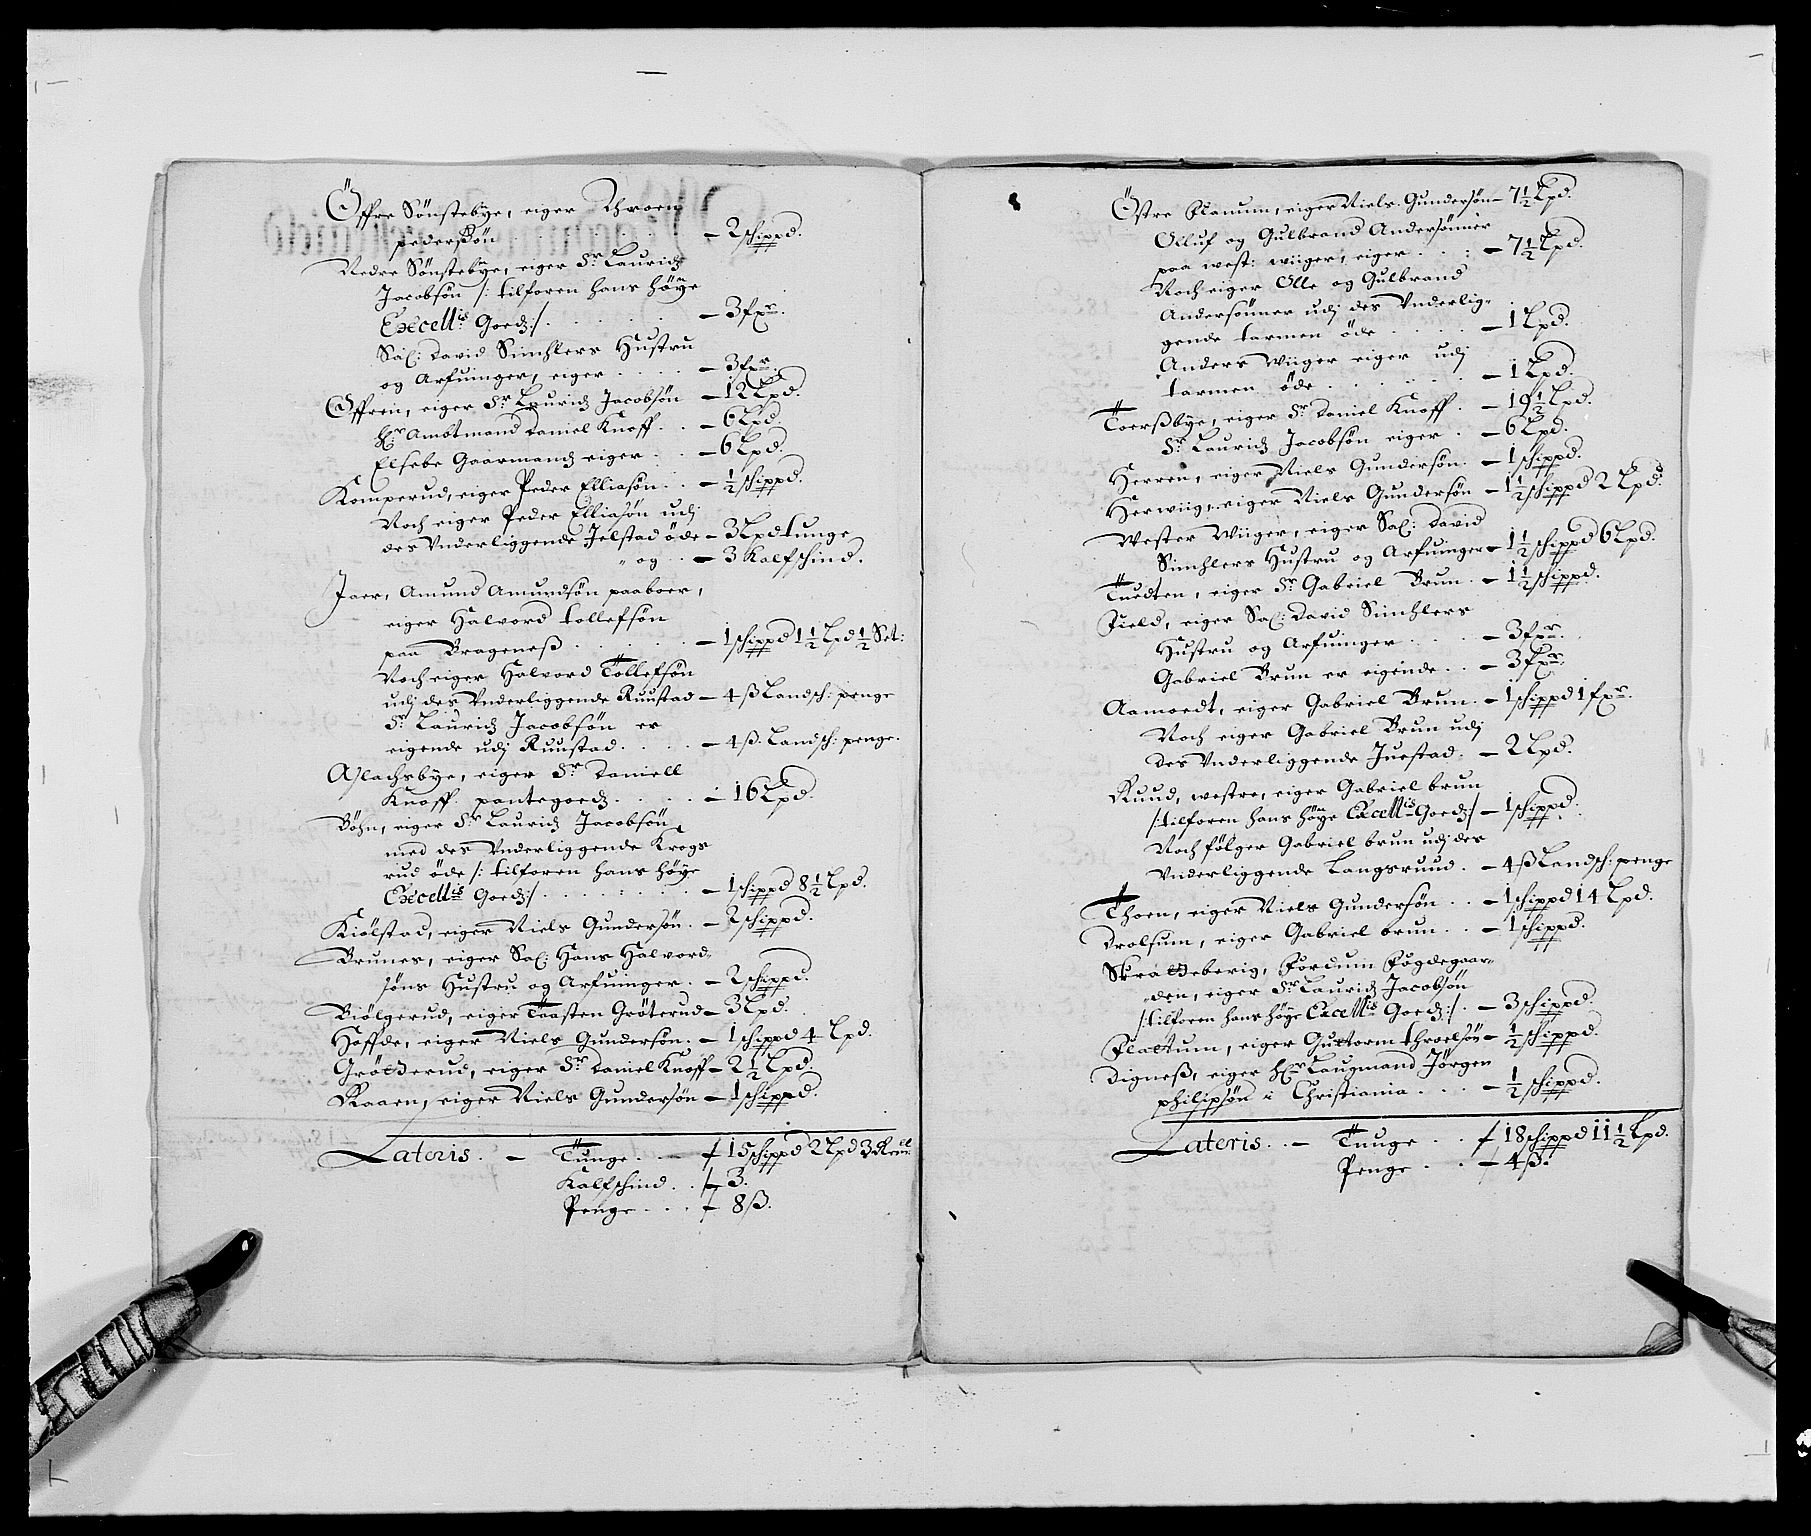 Öffre Sönstebye, eiger Throen
pederßön . . . - 2 schippd.
Nedre Sönstebye, eiger Sr Lauridz
Jacobsön /: tilforen hans höye
Excellis Goedz :/ . . . . - 3 fxr.
Sal: David Simhlers Hustru
og Arfuinger, eiger . . . . - 3 fxr.
Öffren, eiger Sr Lauridz Jacobsön - 12 Lpd.
Hr Ambtmand Daniel Knoff . . - 6 Lpd.
Elsebe Gaarmandz eiger . . - 6 Lpd.
Komperud, eiger Peder Elliasön . . - ½ schippd.
Noch eiger Peder Elliasön udj
des Vnderliggende Jelstad öde - 3 Lpd tunge
" og . . - 3 Kalfschind.
Jaer, Amund Amundsön paaboer,
eiger Halvord tollefsön
paa Brageneß . . . . - 1 schippd 1½ Lpd ½ Set:
Noch eiger Halvord Tollefsön
udj des Vnderliggende Ruustad - 4 ß Landsch: penge
Sr Lauridz Jacobsön er
eigende udj Ruustad . . . . - 4 ß. Landsch: penge.
Aslachsbye, eiger Sr Daniell
Knoff. pantegoedz . . . . - 16 Lpd.
Böhn, eiger Sr Lauridz Jacobsön
med des Vnderliggende Krogs
rud öde /: tilforen hans höye
Excellis Goedz :/ . . . . . . . - 1 schippd 8½ Lpd.
Kiölstad, eiger Niels Gundersön . - 2 schippd.
Brunes, eiger Sal: Hans Halvord-
söns Hustru og Arfuinger . - 2 schippd.
Biölgerud, eiger Taasten Gröterud - 3 Lpd.
Hoffde, eiger Niels Gundersön . - 1 schippd 4 Lpd.
Grötterud, eiger Sr Daniel Knoff - 2½ Lpd.
Raaen, eiger Niels Gundersön - 1 schippd.
Lateris . - Tunge . . - 15 schippd 2 Lpd 3
Kalfschind . . - 3.
Penge . . . - 8 ß.
Östre Flanum, eiger Niels Gundersön - 7½ Lpd.
Olluf og Gulbrand Andersönner
paa west: wiiger, eiger . . : - 7½ Lpd.
Noch eiger Olle og Gulbrand
Andersönner udj des Vnderlig-
gende tarmen öde . . . . - 1 Lpd.
Anders Wiiger eiger udj
tarmen öde . . . . . . . - 1 Lpd.
Toerßbye, eiger Sr Daniel Knoff . - 19⅓ Lpd.
Sr Lauridz Jacobsön eiger . - 6 Lpd.
Herren, eiger Niels Gundersön . - 1 schippd.
Herwiig, eiger Niels Gundersön - 1½ schippd 2 Lpd.
Wester Wiiger, eiger Sal: David
Simhlers Hustru og Arfuinger - 1½ schippd 6 Lpd.
Tuedten, eiger Sr Gabriel Brun . - 1½ schippd.
Field, eiger Sal: David Simhlers
Hustru og Arfuinger . . . . - 3 fxr.
Gabriel Brun er eigende . . - 3 fxr.
Aamoedt, eiger Gabriel Brun . - 1 schippd 1 fxr.
Noch eiger Gabriel Brun udj
des Vnderliggende Juestad . - 2 Lpd.
Ruud, westre, eiger Gabriel brun
/: tilforen hans höye Excellis Goedz :/ - 1 schippd.
Noch fölger Gabriel brun udj des
Vnderliggende Langsruud . - 4 ß Landsch: penge
Thoen, eiger Niels Gundersön . . - 1 schippd 14 Lpd.
Drolsum, eiger Gabriel brun . . - 1 schippd.
Skralteberig, Fordum Fogdegaar-
den, eiger Sr Lauridz Jacobsön
/: tilforen hans höye Excellis Goedz :/ . - 3 schippd.
Flattum, eiger Guttorm throelsön - ½ schippd.
Digneß, eiger Hr Laugmand Jörgen
philipsön i Christiania . . . . - ½ schippd.
Lateris . . - Tunge . . - 18 schippd 11½ Lpd.
Penge . . - 4 ß.